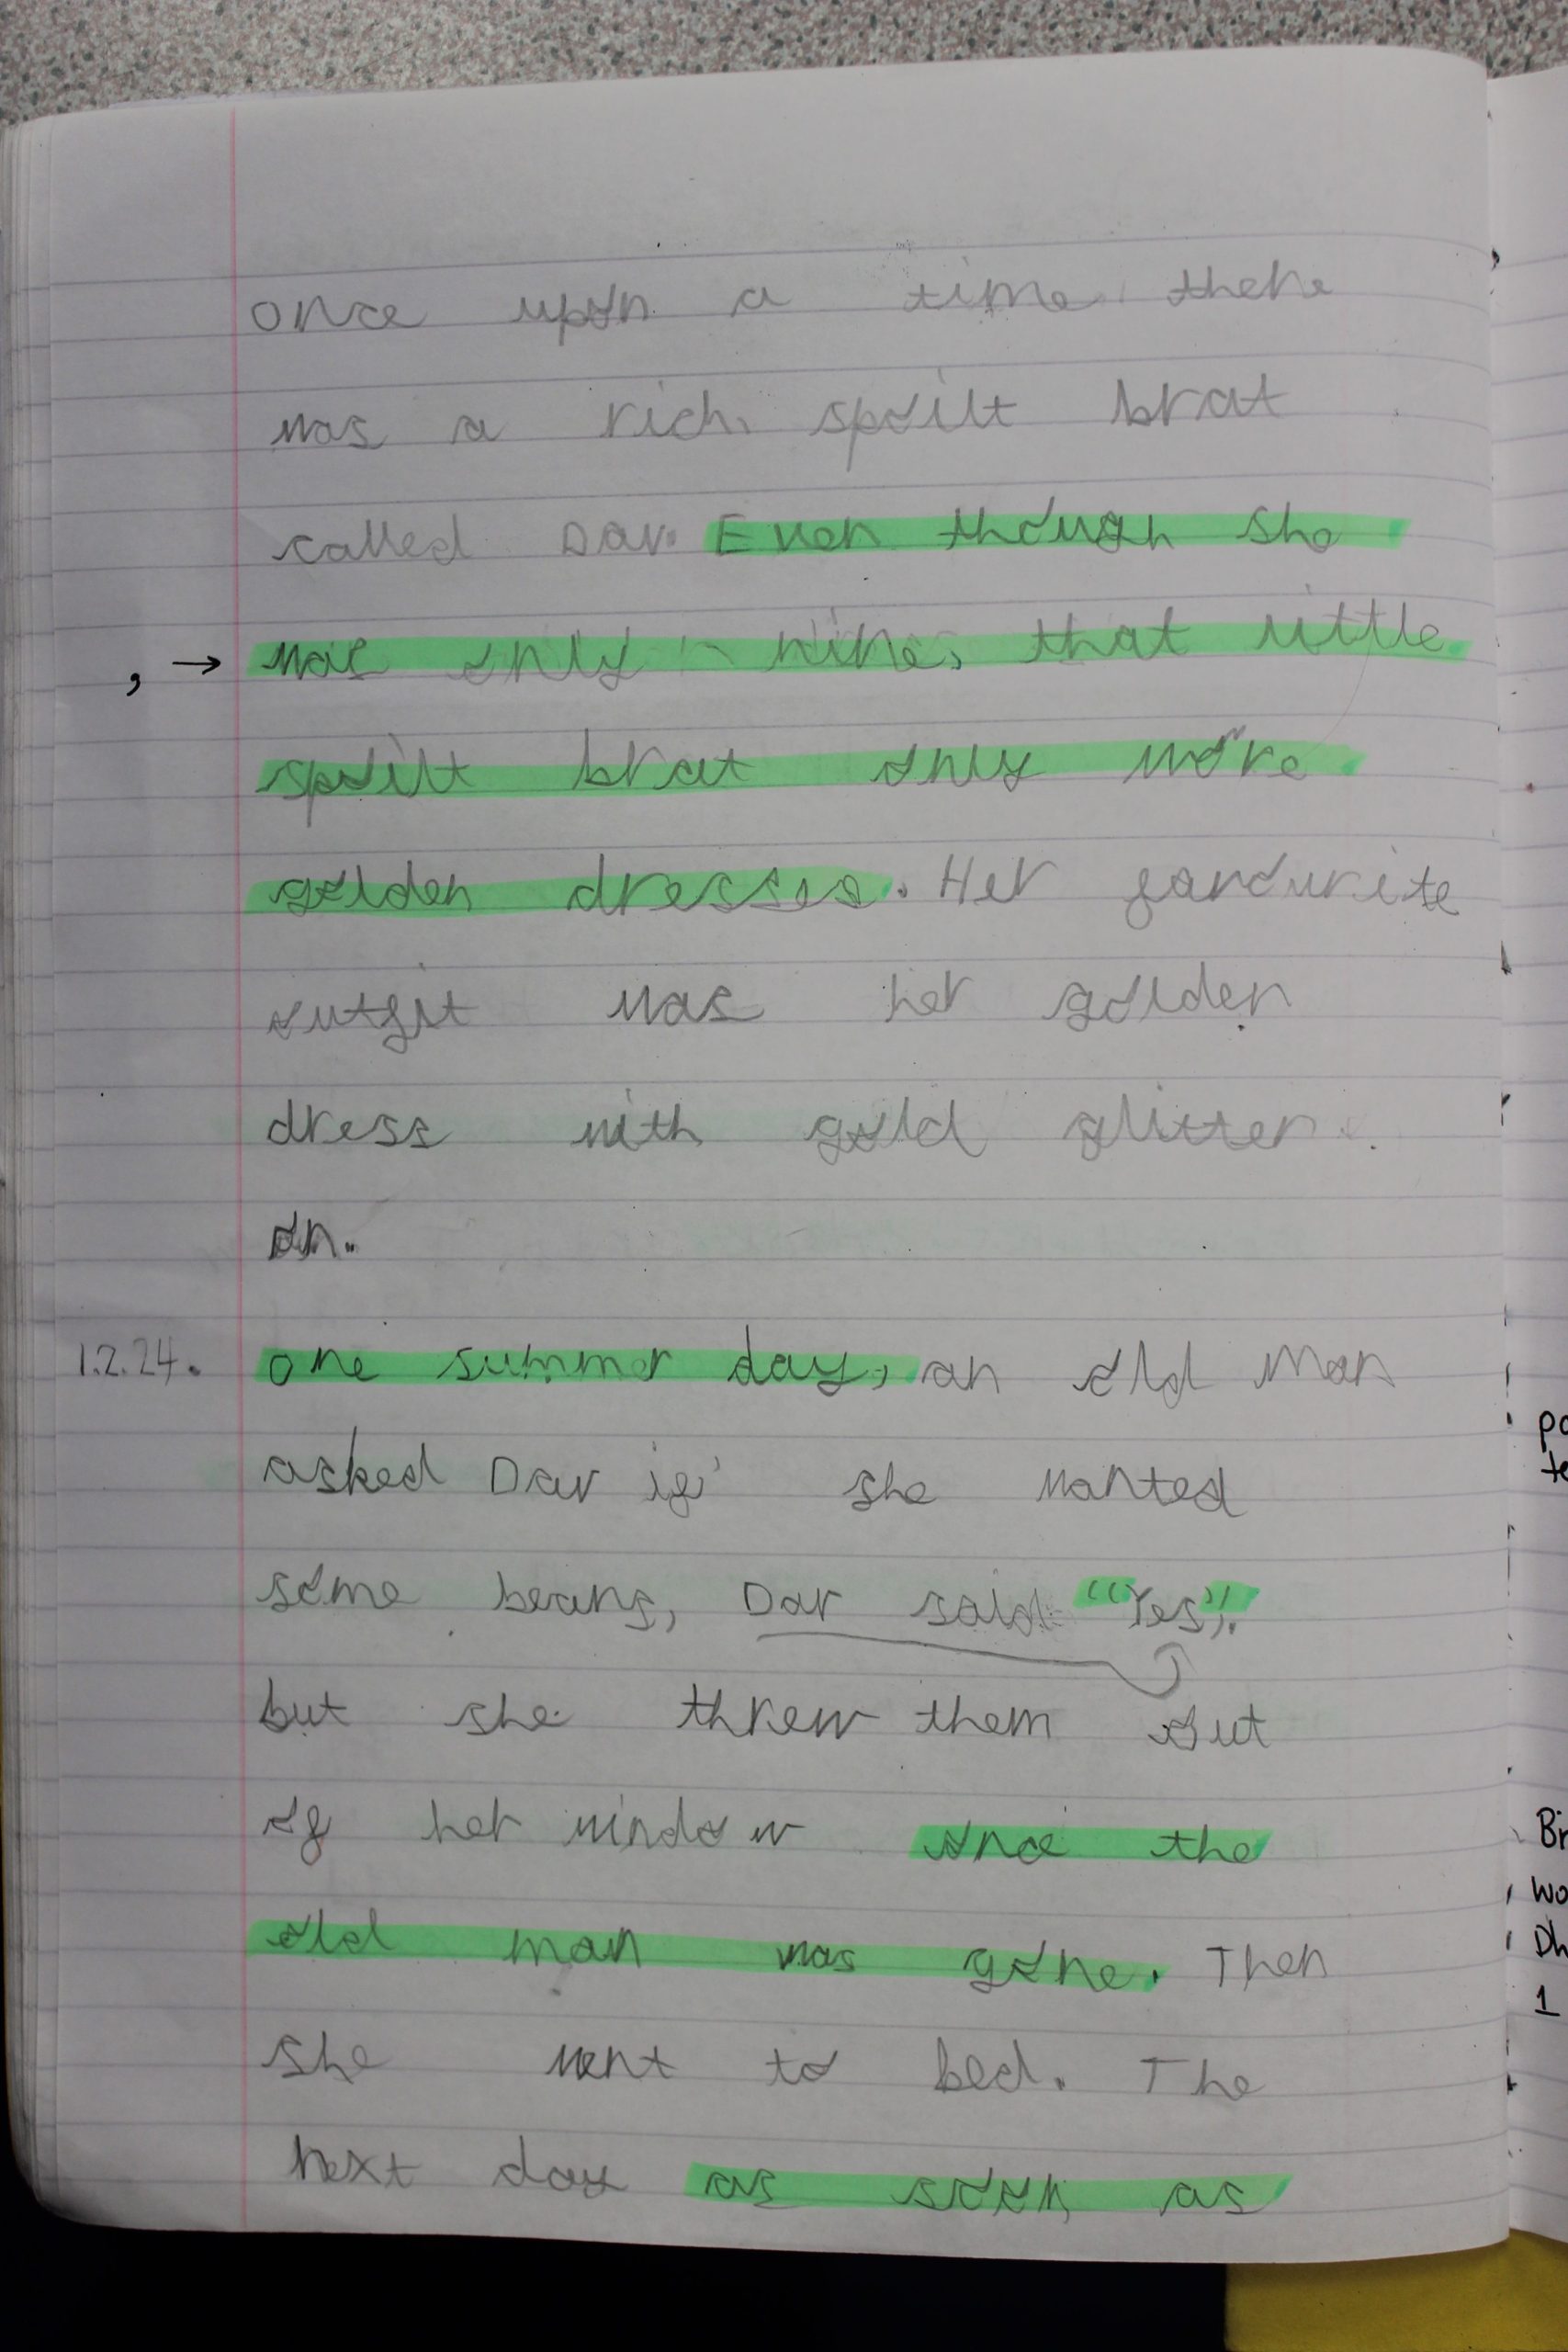 once upon a time there
was a rich spoilt brat
called Dav. Even though she
, → was only nine, that little
spoilt brat only wore
golden dresses. Her favourite
outfit was her golden
dress with gold glitter
on.
1.2.24. one summer day, an old man
asked Dav if she wanted
some beans, Dav said "Yes".
but she threw them out
of her window once the
old man was gone. Then
she went to bed. The
next day as soon as
po
te
Br
wo
Dh
1